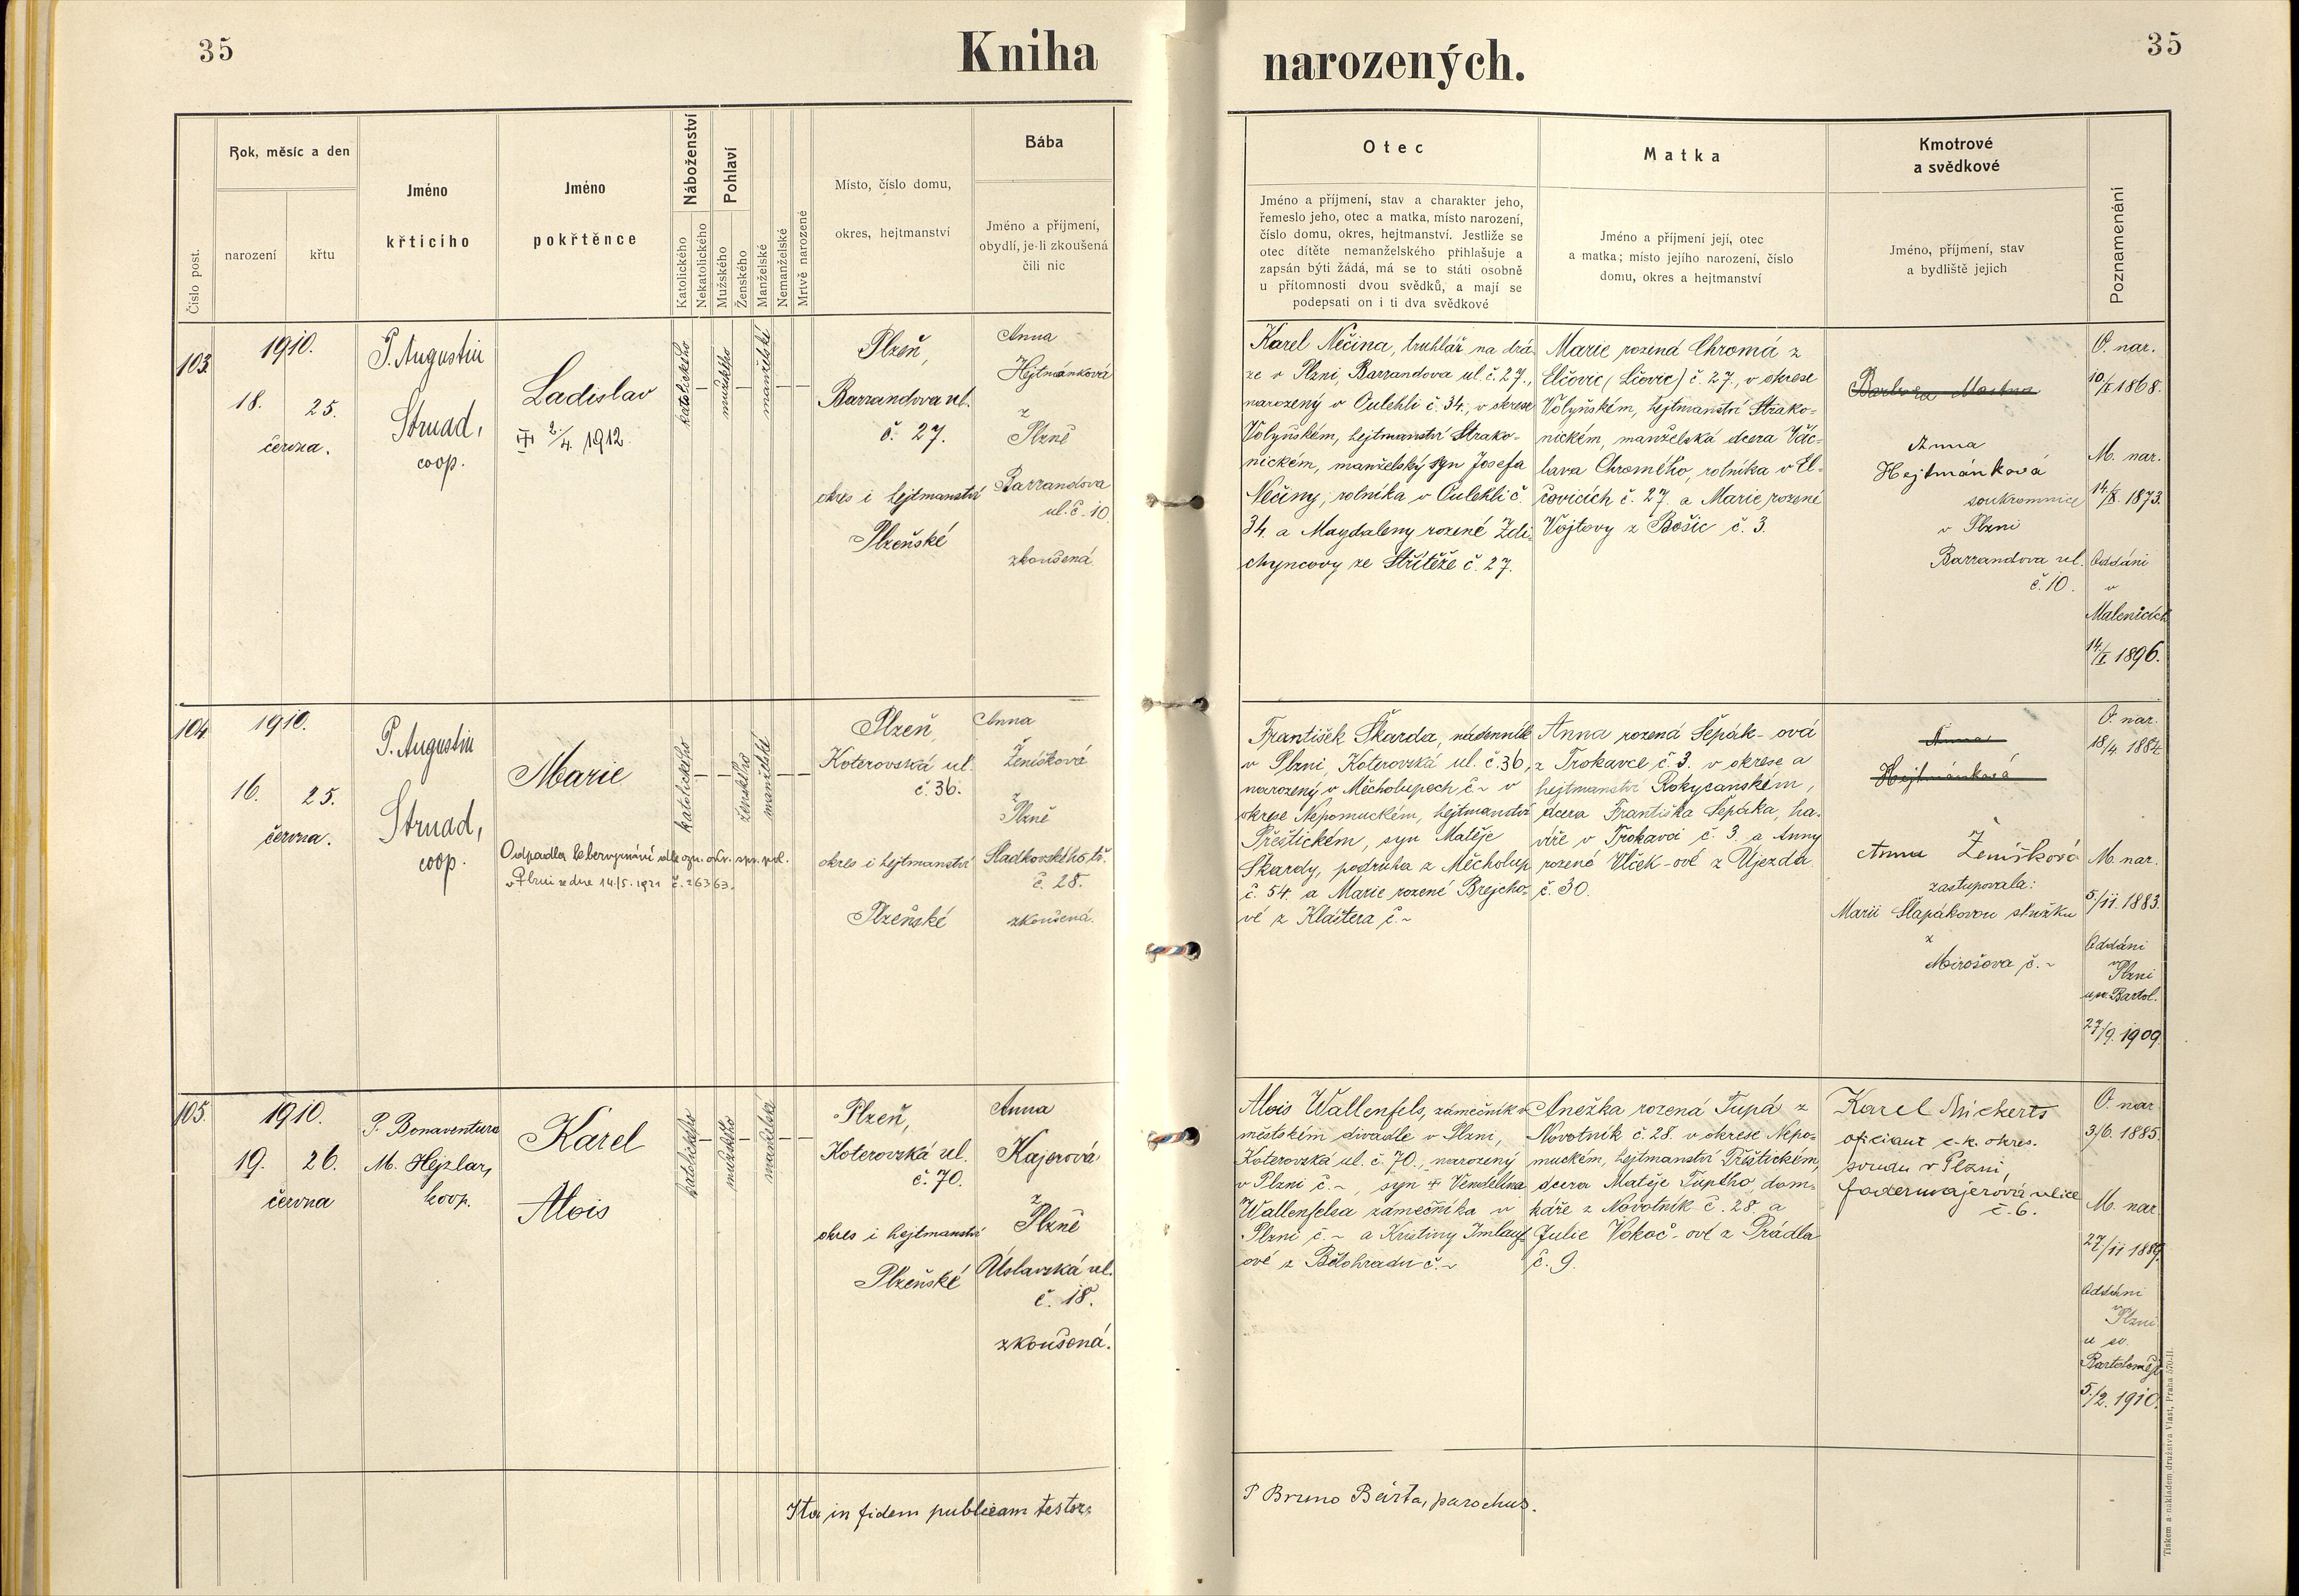 35
Kniha
narozených.
35
Číslo post.
Rok, měsíc a den
narození
křtu
Jméno
křtícího
Jméno
pokřtěnce
Náboženství
Katolického
Nekatolického
Pohlaví
Mužského
Ženského
Manželské
Nemanželské
Mrtvě narozené
Místo, číslo domu,
okres, hejtmanství
Bába
Jméno a příjmení,
obydlí, je-li zkoušená
čili nic
Otec
Jméno a příjmení, stav a charakter jeho,
řemeslo jeho, otec a matka, místo narození,
číslo domu, okres, hejtmanství. Jestliže se
otec dítěte nemanželského přihlašuje a
zapsán býti žádá, má se to státi osobně
u přítomnosti dvou svědků, a mají se
podepsati on i ti dva svědkové
Matka
Jméno a příjmení její, otec
a matka; místo jejího narození, číslo
domu, okres a hejtmanství
Kmotrové
a svědkové
Jméno, příjmení, stav
a bydliště jejich
Poznamenání
103.
1910.
18. 25.
června.
P. Augustin
Strnad,
coop.
Ladislav
2./4. 1912.
katolického
mužského
manželské
Plzeň,
Barrandova ul.
č. 27.
okres i hejtmanství
Plzeňské
Anna
Hejtmánková
z
Plzně
Barrandova
ul. č. 10.
zkoušená.
Karel Nečina, truhlář na drá-
ze v Plzni, Barrandova ul. č. 27.,
narozený v Oulehli č. 34., v okrese
Volyňském, hejtmanství Strako-
nickém, manželský syn Josefa
Nečiny, rolníka v Oulehli č.
34. a Magdaleny rozené Zdi-
chyncovy ze Střítěže č. 27.
Marie rozená Chromá z
Elčovic (Lčovic) č. 27., v okrese
Volyňském, hejtmanství Strako-
nickém, manželská dcera Vác-
lava Chromého, rolníka v El-
čovicích č. 27. a Marie, rozené
Vojtovy z Bošic č. 3.
Barbora
Anna
Hejtmánková
soukromnice
v Plzni
Barrandova ul.
č. 10.
O. nar.
10/X 1868.
M. nar.
14./X. 1873.
Oddáni
v
Malenicích
14./I. 1896.
104.
1910.
16. 25.
června.
P. Augustin
Strnad,
coop.
Marie
Odpadla k bezvyznání dle ozn. okr. spr. pol.
v Plzni ze dne 14./5. 1921 č. 26363.
katolického
ženského
manželské
Plzeň,
Koterovská ul.
č. 36.
okres i hejtmanství
Plzeňské
Anna
Ženíšková
z
Plzně
Sladkovského tř.
č. 28.
zkoušená.
František Škarda, nádenník
v Plzni, Koterovská ul. č. 36,
narozený v Měcholupech č. ~ v
okrese Nepomuckém, hejtmanství
Přeštickém, syn Matěje
Škardy, podruha z Měcholup
č. 54. a Marie rozené Brejcho-
vé z Kláštera č. ~
Anna rozená Šepák-ová
z Trokavce č. 3. v okrese a
hejtmanství Rokycanském,
dcera Františka Šepáka, ha-
víře v Trokavci č. 3. a Anny
rozené Vlček-ové z Újezda
č. 30.
Anna
Hejtmánková
Anna Ženíšková
zastupovala:
Marii Šlapákovou služku
z
Mirošova č. ~
O. nar.
18/4. 1884.
M. nar.
5./11. 1883.
Oddáni
v
Plzni
u sv. Bartol.
27./9. 1909.
105.
1910.
19. 26.
června
P. Bonaventura
M. Hejzlar,
koop.
Karel
Alois
katolického
mužského
manželské
Plzeň,
Koterovská ul.
č. 70.
okres i hejtmanství
Plzeňské
Anna
Kajerová
z
Plzně
Úslavská ul.
č. 18.
zkoušená.
Alois Wallenfels, zámečník v
městském divadle v Plzni,
Koterovská ul. č. 70., narozený
v Plzni č. ~, syn † Vendelína
Wallenfelsa zámečníka v
Plzni č. ~ a Kristiny Imlauf-
ové z Bělohradu č. ~
Anežka rozená Tupá z
Novotník č. 28. v okrese Nepo-
muckém, hejtmanství Přeštickém,
dcera Matěje Tupého, dom-
káře z Novotník č. 28. a
Julie Vokáč-ové z Prádla
č. 9.
Karel
oficiant c. k. okres.
soudu v Plzni,
ulice
č. 6.
O. nar.
3./6. 1885.
M. nar.
27./11 1889.
Oddáni
v
Plzni
u sv.
Bartoloměje
5./2. 1910.
Ita in fidem publicam testor:
P Bruno Bárta, parochus.
Tiskem a nákladem družstva Vlast, Praha 570-II.